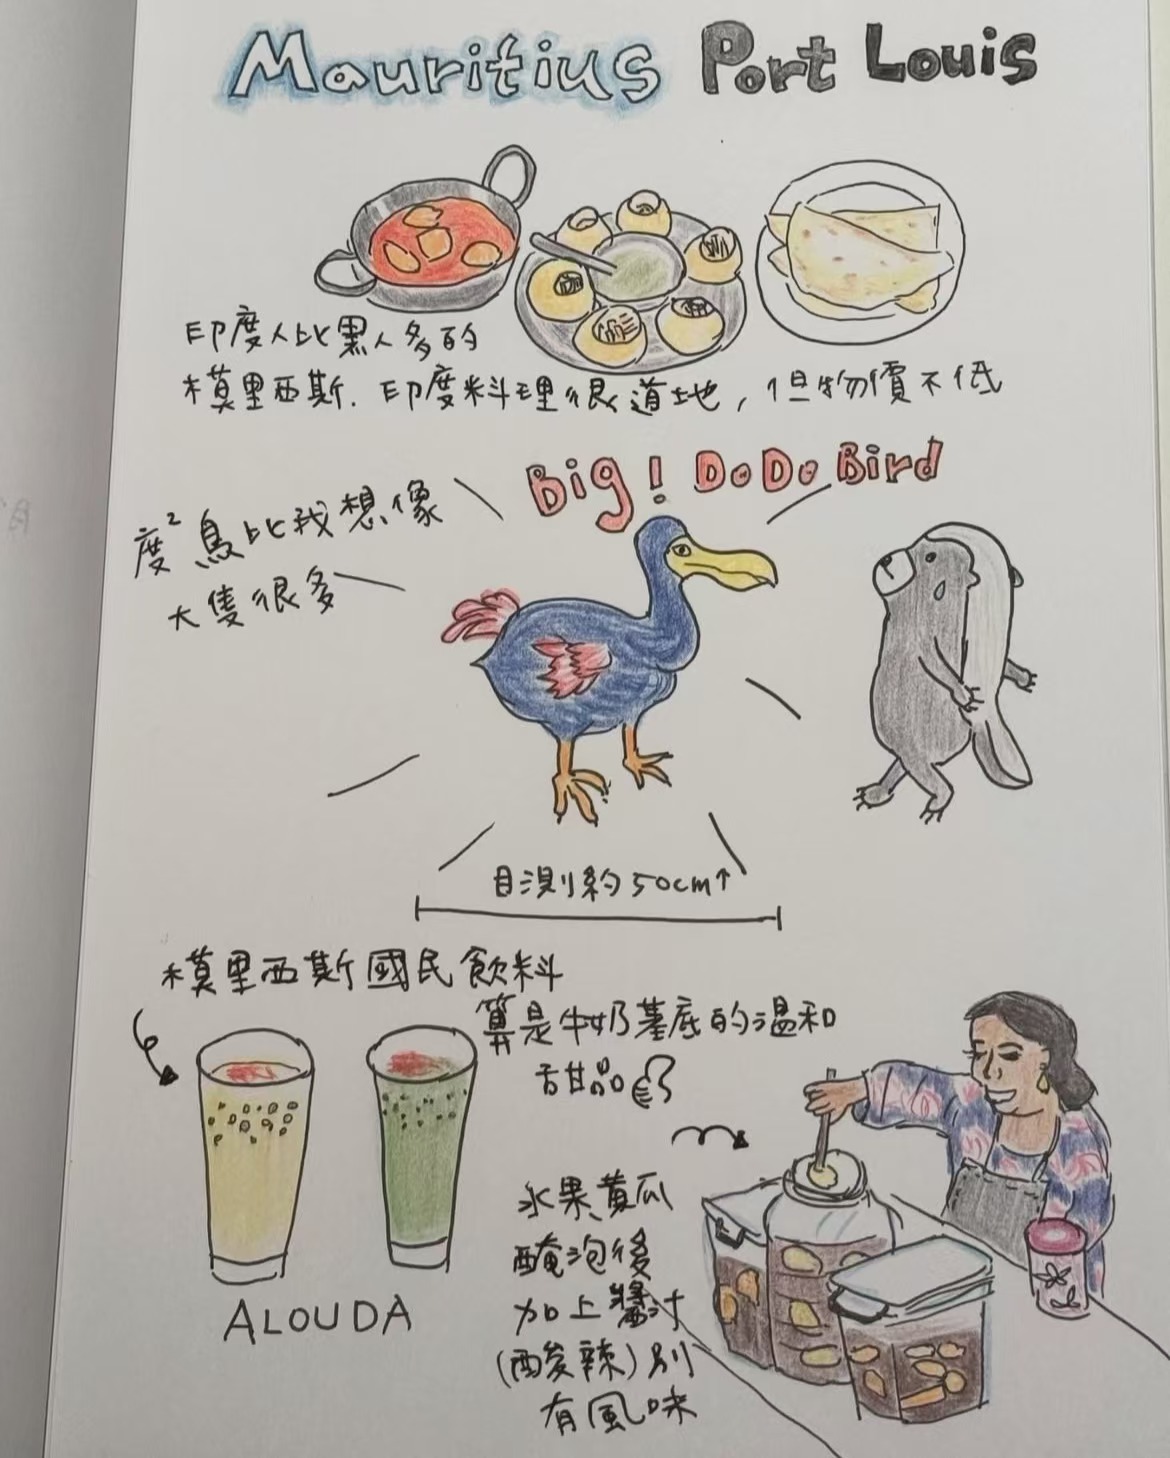 Mauritius Port Louis
印度人比黑人多的
模里西斯. 印度料理很道地, 但物價不低
Big! DoDo Bird
度²鳥比我想像
大隻很多
目測約50cm↑
模里西斯國民飲料
算是牛奶基底的溫和
甜品
ALOUDA
水果、黃瓜
醃泡後
加上醬汁
(酸辣)別
有風味